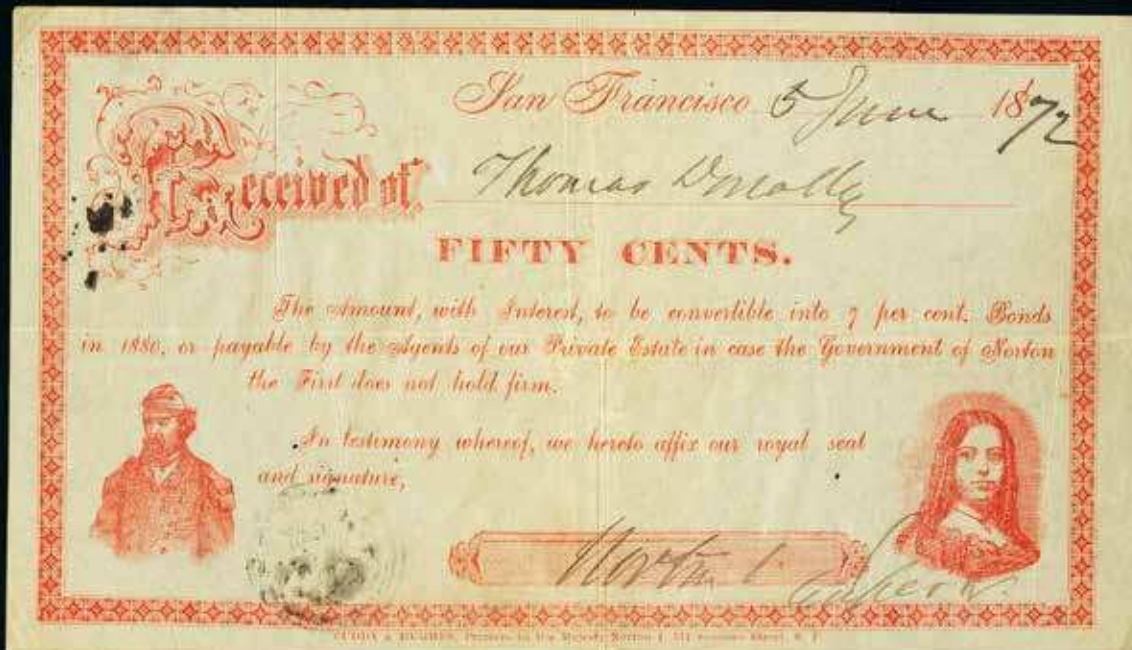 San Francisco 5 June 1872
Received of Thomas Donolly
FIFTY CENTS.
The Amount, with Interest, to be convertible into 7 per cent. Bonds
in 1880, or payable by the Agents of our Private Estate in case the Government of Norton
the First does not hold firm.
In testimony whereof, we hereto affix our royal seal
and signature,
Norton I
Emperor.
CUDDY & HUGHES, Printers to His Majesty Norton I, 511 Sansome Street, S. F.